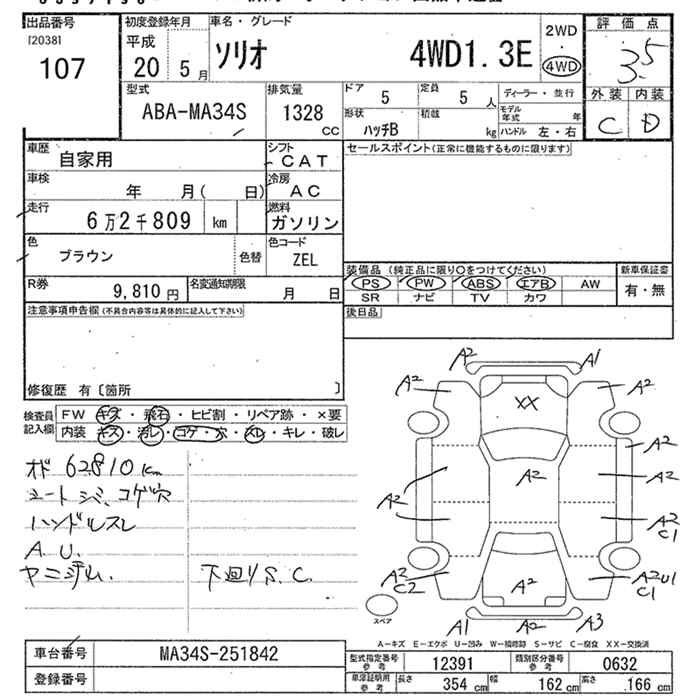 出品番号
120381
107
初度登録年月
平成
20 5月
車名・グレード
ソリオ 4WD1.3E
2WD
・
4WD
評価点
3.5
外装 内装
C D
型式
ABA-MA34S
排気量
1328
CC
ドア
5
定員
5 人
ディーラー・並行
形状
ハッチB
積載
kg
モデル年式 年
ハンドル 左・右
車歴
自家用
シフト
CAT
セールスポイント(正常に機能するものに限ります)
車検
年 月( 日)
冷房
AC
走行
6万2千809 km
燃料
ガソリン
色
ブラウン
色替
色コード
ZEL
装備品 (純正品に限り○をつけてください)
新車保証書
PS PW ABS エアB AW
有・無
SR ナビ TV カワ
R券
9,810 円
名変通知期限
月 日
後日品
注意事項申告欄(不具合内容等は具体的に記入して下さい)
修復歴 有〔箇所 〕
検査員記入欄
FW キズ・飛石・ヒビ割・リペア跡・×要
内装 キズ・汚レ・コゲ・穴・スレ・キレ・破レ
オド 62810 Km
シートシミ、コゲ穴
ハンドルスレ
A.U.
ヤニジム.
下回りS.C.
A2 A1
A2 A2
XX
A2
A2 A2
A2
A2
C1
A2
C2
A2
A2U1
C1
A1 A2 A3
スペア
A−キズ E−エクボ U−凹み W−補修跡 S−サビ C−腐食 XX−交換済
車台番号
MA34S-251842
登録番号
型式指定番号
参考
12391
類別区分番号
参考
0632
車庫証明用
参考
長さ 354 cm
幅 162 cm
高さ 166 cm